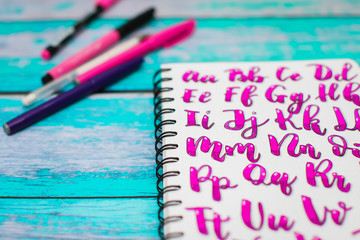 Aa Bb Cc Dd
Ee Ff Gg Hh
Ii Jj Kk L
Mm Nn Oo
Pp Qq Rr
Tt Uu Vv